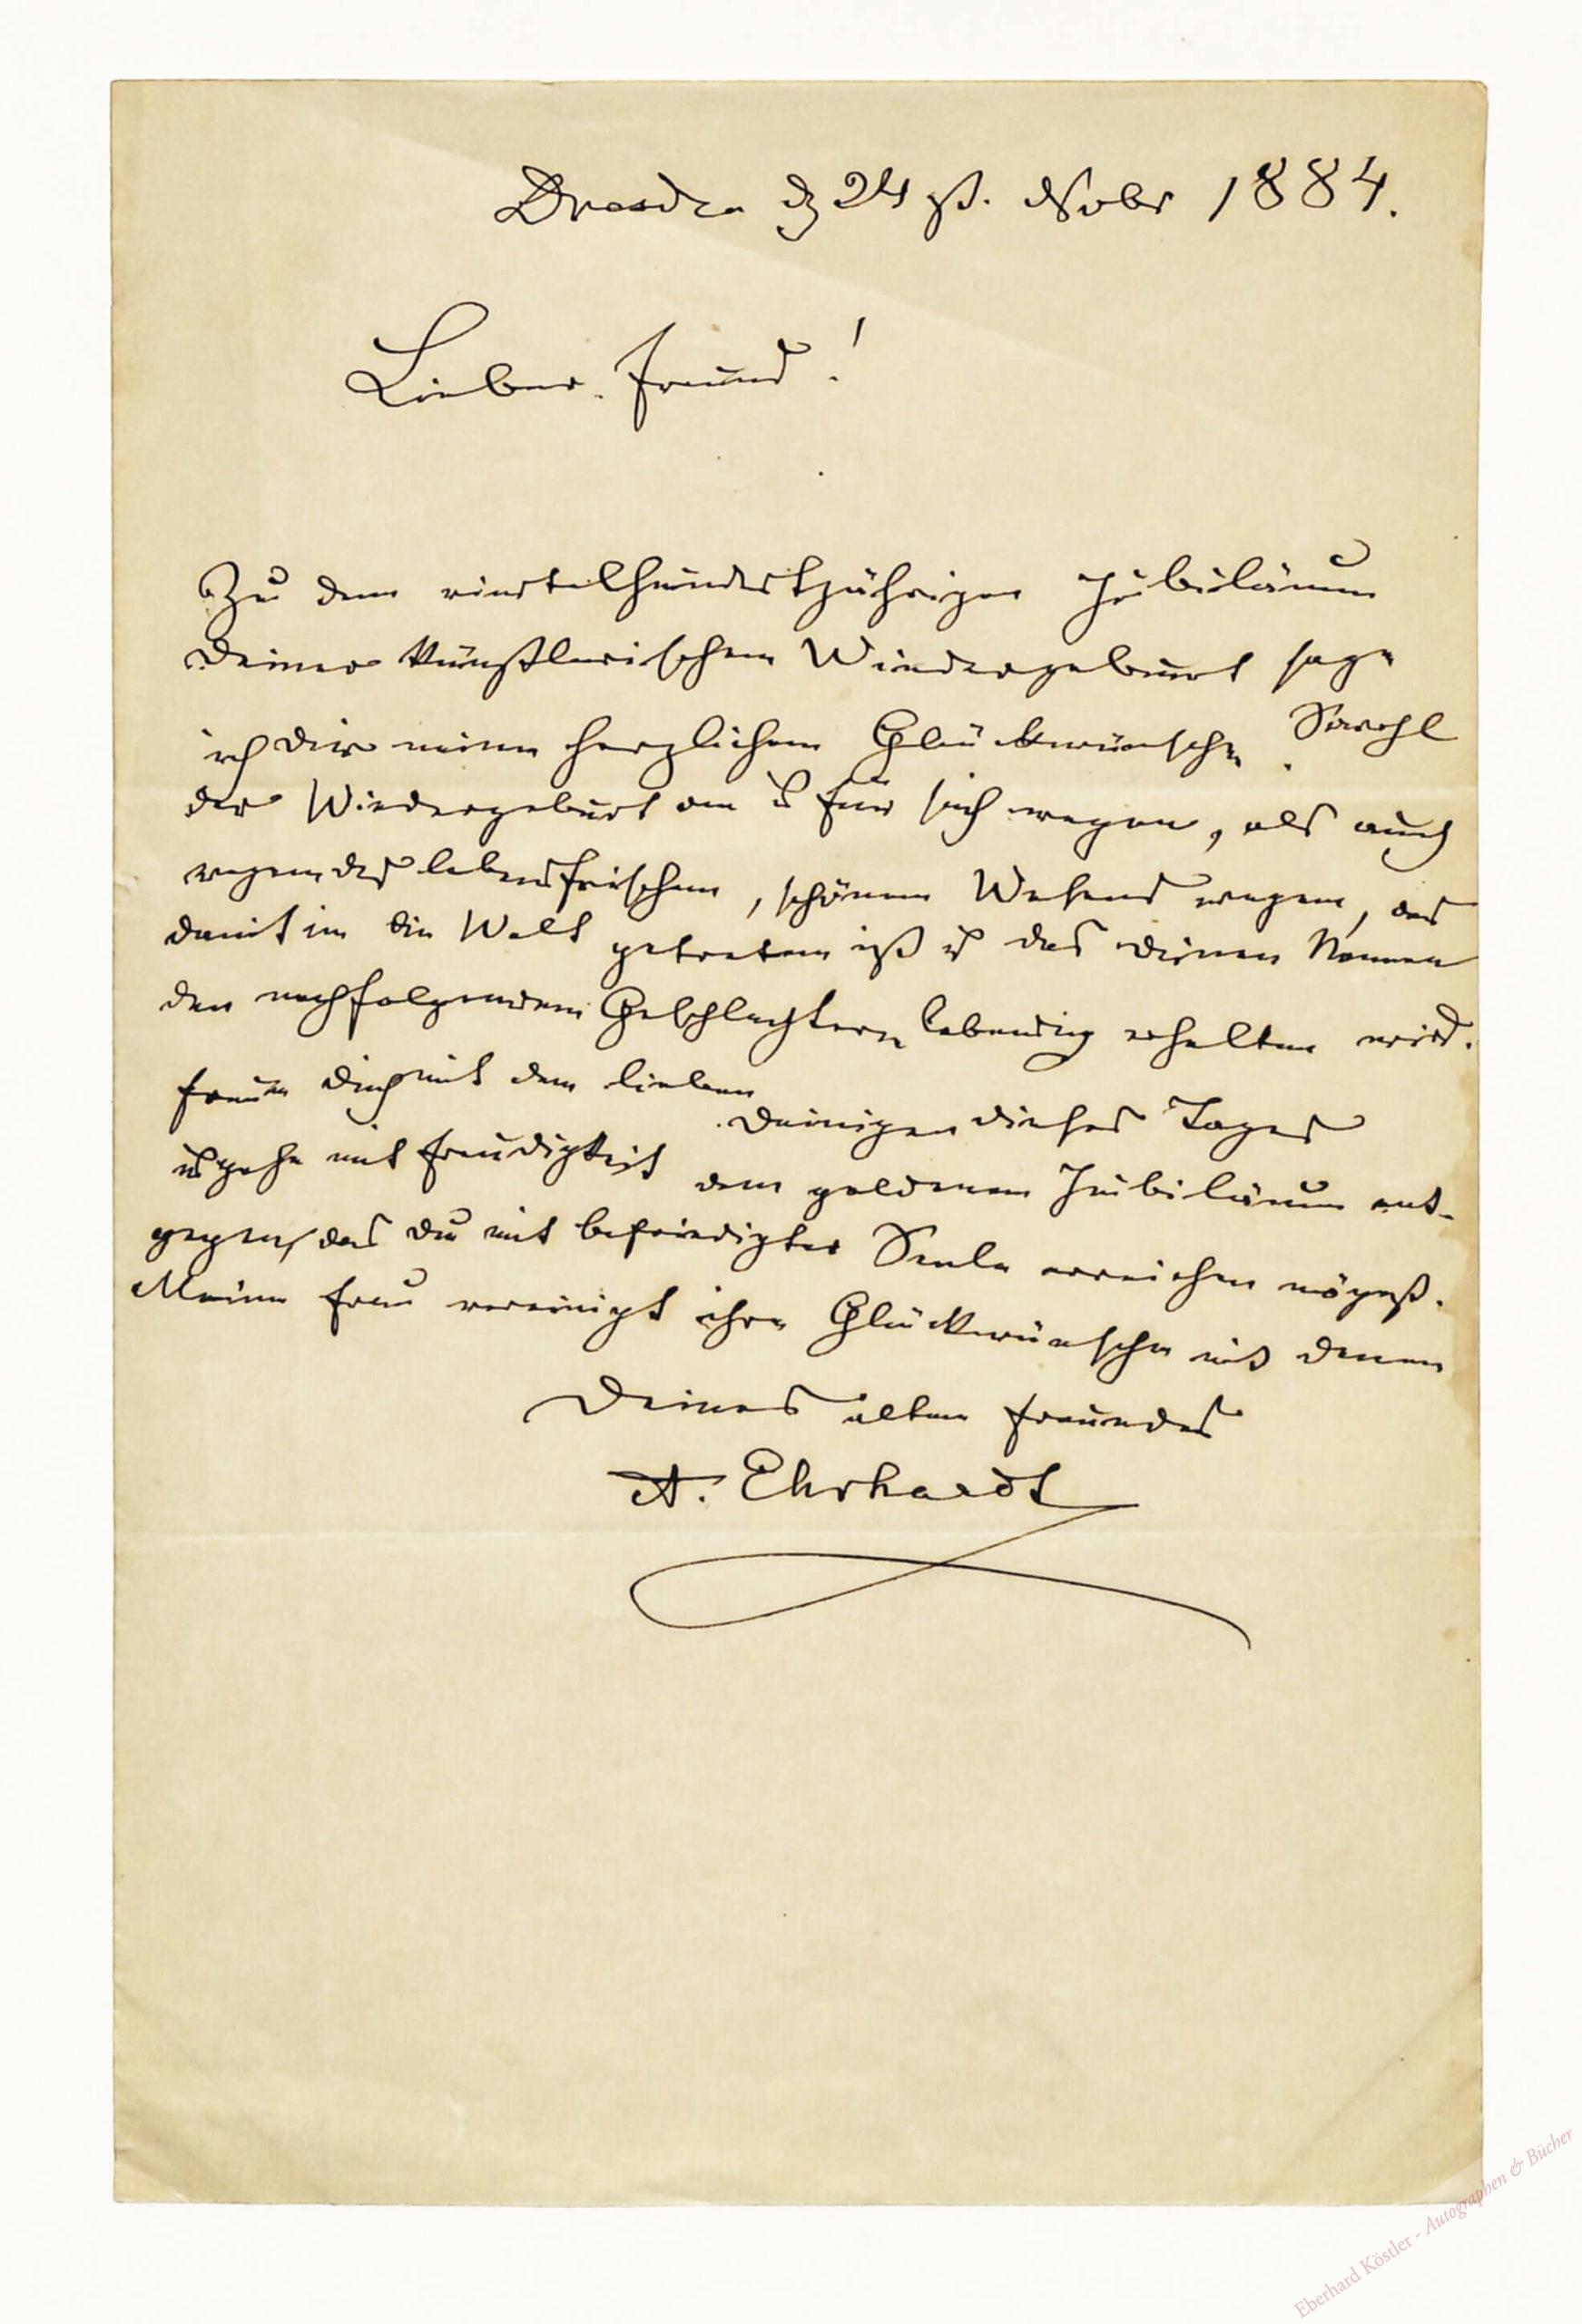 Dresden d 24 st. Nobr 1884.
Lieber Freund!
Zu dem viertelhundertjährigen Jubiläum
Deiner künstlerischen Wiedergeburt sage
ich Dir meine herzlichen Glückwünsche. Sowohl
der Wiedergeburt an u für sich wegen, als auch
wegen des lebensfrischen, schönen Wesens wegen, das
damit in die Welt getreten ist u das Deinen Namen
den nachfolgenden Geschlechtern lebendig erhalten wird.
Freue Dich mit den lieben Deinigen dieses Tages
u gehe mit Freudigkeit dem goldenen Jubiläum ent-
gegen, das Du mit befriedigter Seele erreichen mögest.
Meine Frau vereinigt ihre Glückwünsche mit denen
Deines alten Freundes
A. Ehrhardt
Eberhard Köstler - Autographen & Bücher